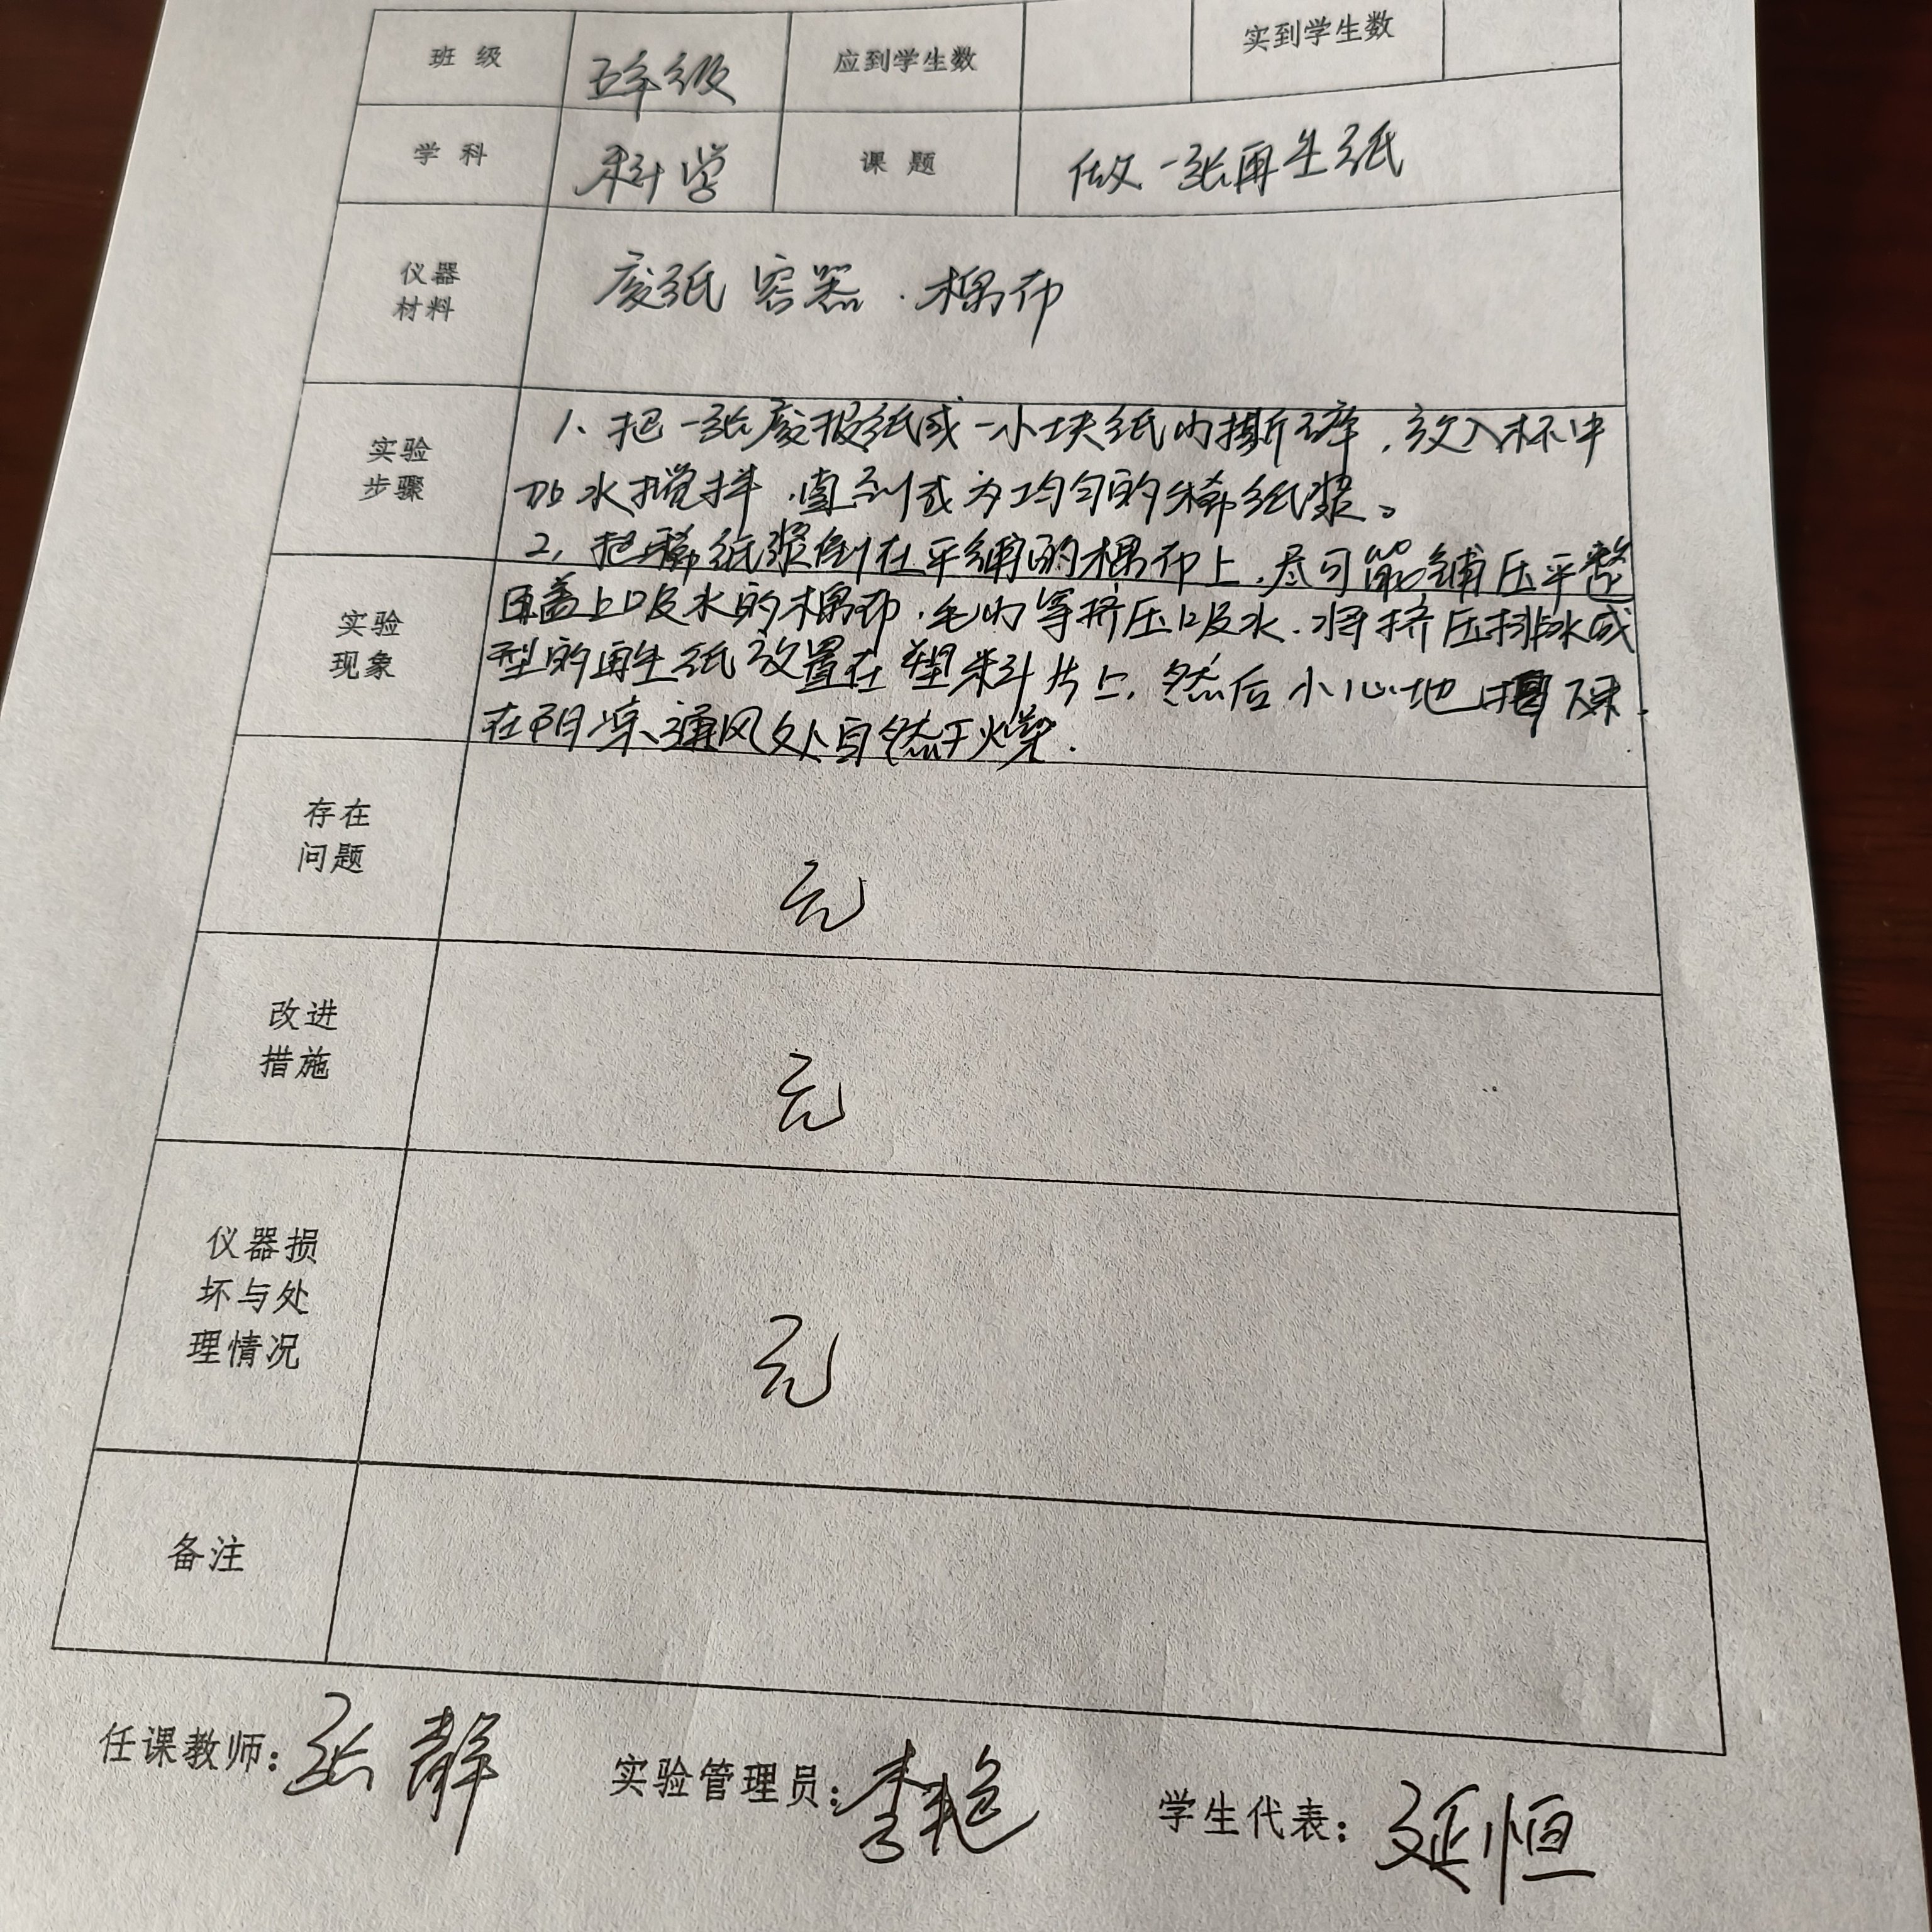 班 级 五年级 应到学生数 实到学生数
学 科 科学 课 题 做一张再生纸
仪器
材料
废纸 容器.棉布
实验
步骤
1、把一张废报纸或一小块纸巾撕碎,放入杯中
加水搅拌,直到成为均匀的稀纸浆。
2,把稀纸浆倒在平铺的棉布上,尽可能铺压平整
实验
现象
再盖上吸水的棉布,毛巾等挤压吸水.将挤压排水成
型的再生纸放置在塑料片上,然后小心地揭下来.
在阴凉、通风处自然干燥.
存在
问题
无
改进
措施
无
仪器损
坏与处
理情况
无
备注
任课教师: 张静 实验管理员: 李艳 学生代表: 延恒